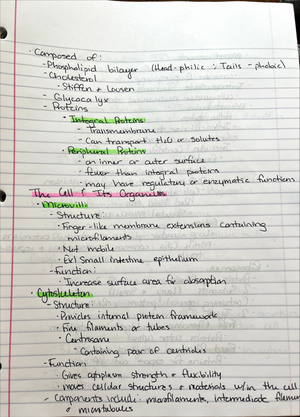 · Composed of:
- Phospholipid bilayer (Head-philic ; Tails-phobic)
- Cholesterol
· Stiffen + Loosen
- Glycocalyx
- Proteins
· Integral Proteins
- Transmembrane
- Can transport H2O or solutes
· Peripheral Proteins
- on inner or outer surface
- fewer than integral proteins
- may have regulatory or enzymatic functions
The Cell & Its Organelles
· Microvilli
- Structure:
· Finger-like membrane extensions containing
microfilaments
· Not mobile
· Ex) Small intestine epithelium
- Function:
· Increase surface area for absorption
· Cytoskeleton
- Structure:
· Provides internal protein framework
· Fine filaments or tubes
· Centrosome
- Containing pair of centrioles
- Function:
· Gives cytoplasm strength & flexibility
· moves cellular structures & materials w/in the cell
- Components include: microfilaments, intermediate
& microtubules